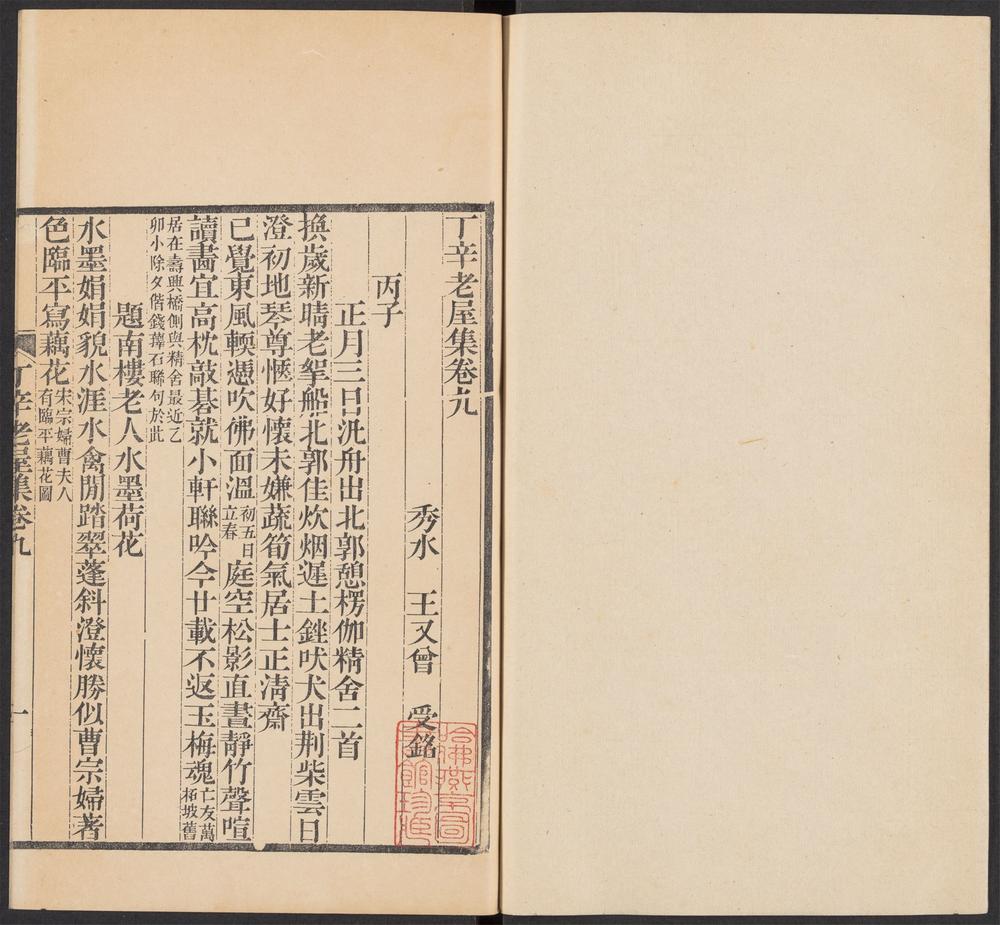 丁辛老屋集卷九
秀水　王又曾　受銘
丙子
正月三日汎舟出北郭憩楞伽精舍二首
換歲新晴老挐船北郭佳炊烟遲土銼吠犬出荆柴雲日
澄初地琴尊愜好懷未嫌蔬筍氣居士正清齋
已覺東風輭慿吹佛面溫初五日立春庭空松影直晝靜竹聲喧
讀畵宜高枕敲碁就小軒聯吟今廿載不返玉梅魂亡友萬柘坡舊
居在壽興橋側與精舍最近乙
卯小除夕偕錢蘀石聯句於此
題南樓老人水墨荷花
水墨娟娟貌水涯水禽閒踏翠蓬斜澄懷勝似曹宗婦著
色臨平寫藕花宋宗婦曹夫人有臨平藕花圖
丁辛老屋集卷九
一
哈佛燕京圖書館珍藏